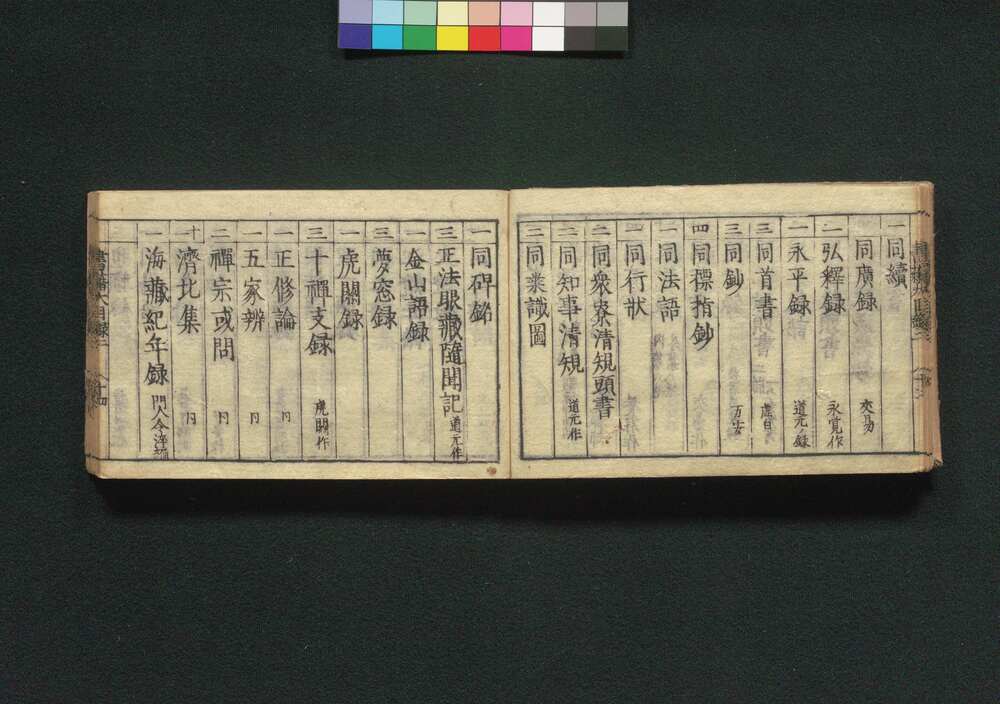 一 同續
同廣録 交易
二 弘釋録 永寛作
一 永平録 道元ノ録
三 同首書
三 同鈔 万安
四 同標指鈔
一 同法語
一 同行状
二 同衆寮清規頭書
二 同知事清規 道元作
二 同業識圖
一 同碑銘
三 正法眼藏隨聞記 道元作
一 金山語録
三 夢窓録
一 虎關録
三 十禪支録 虎関作
一 正修論 同
一 五家辨 同
二 禪宗或問 同
十 濟北集 同
一 海藏紀年録 門人令淬編